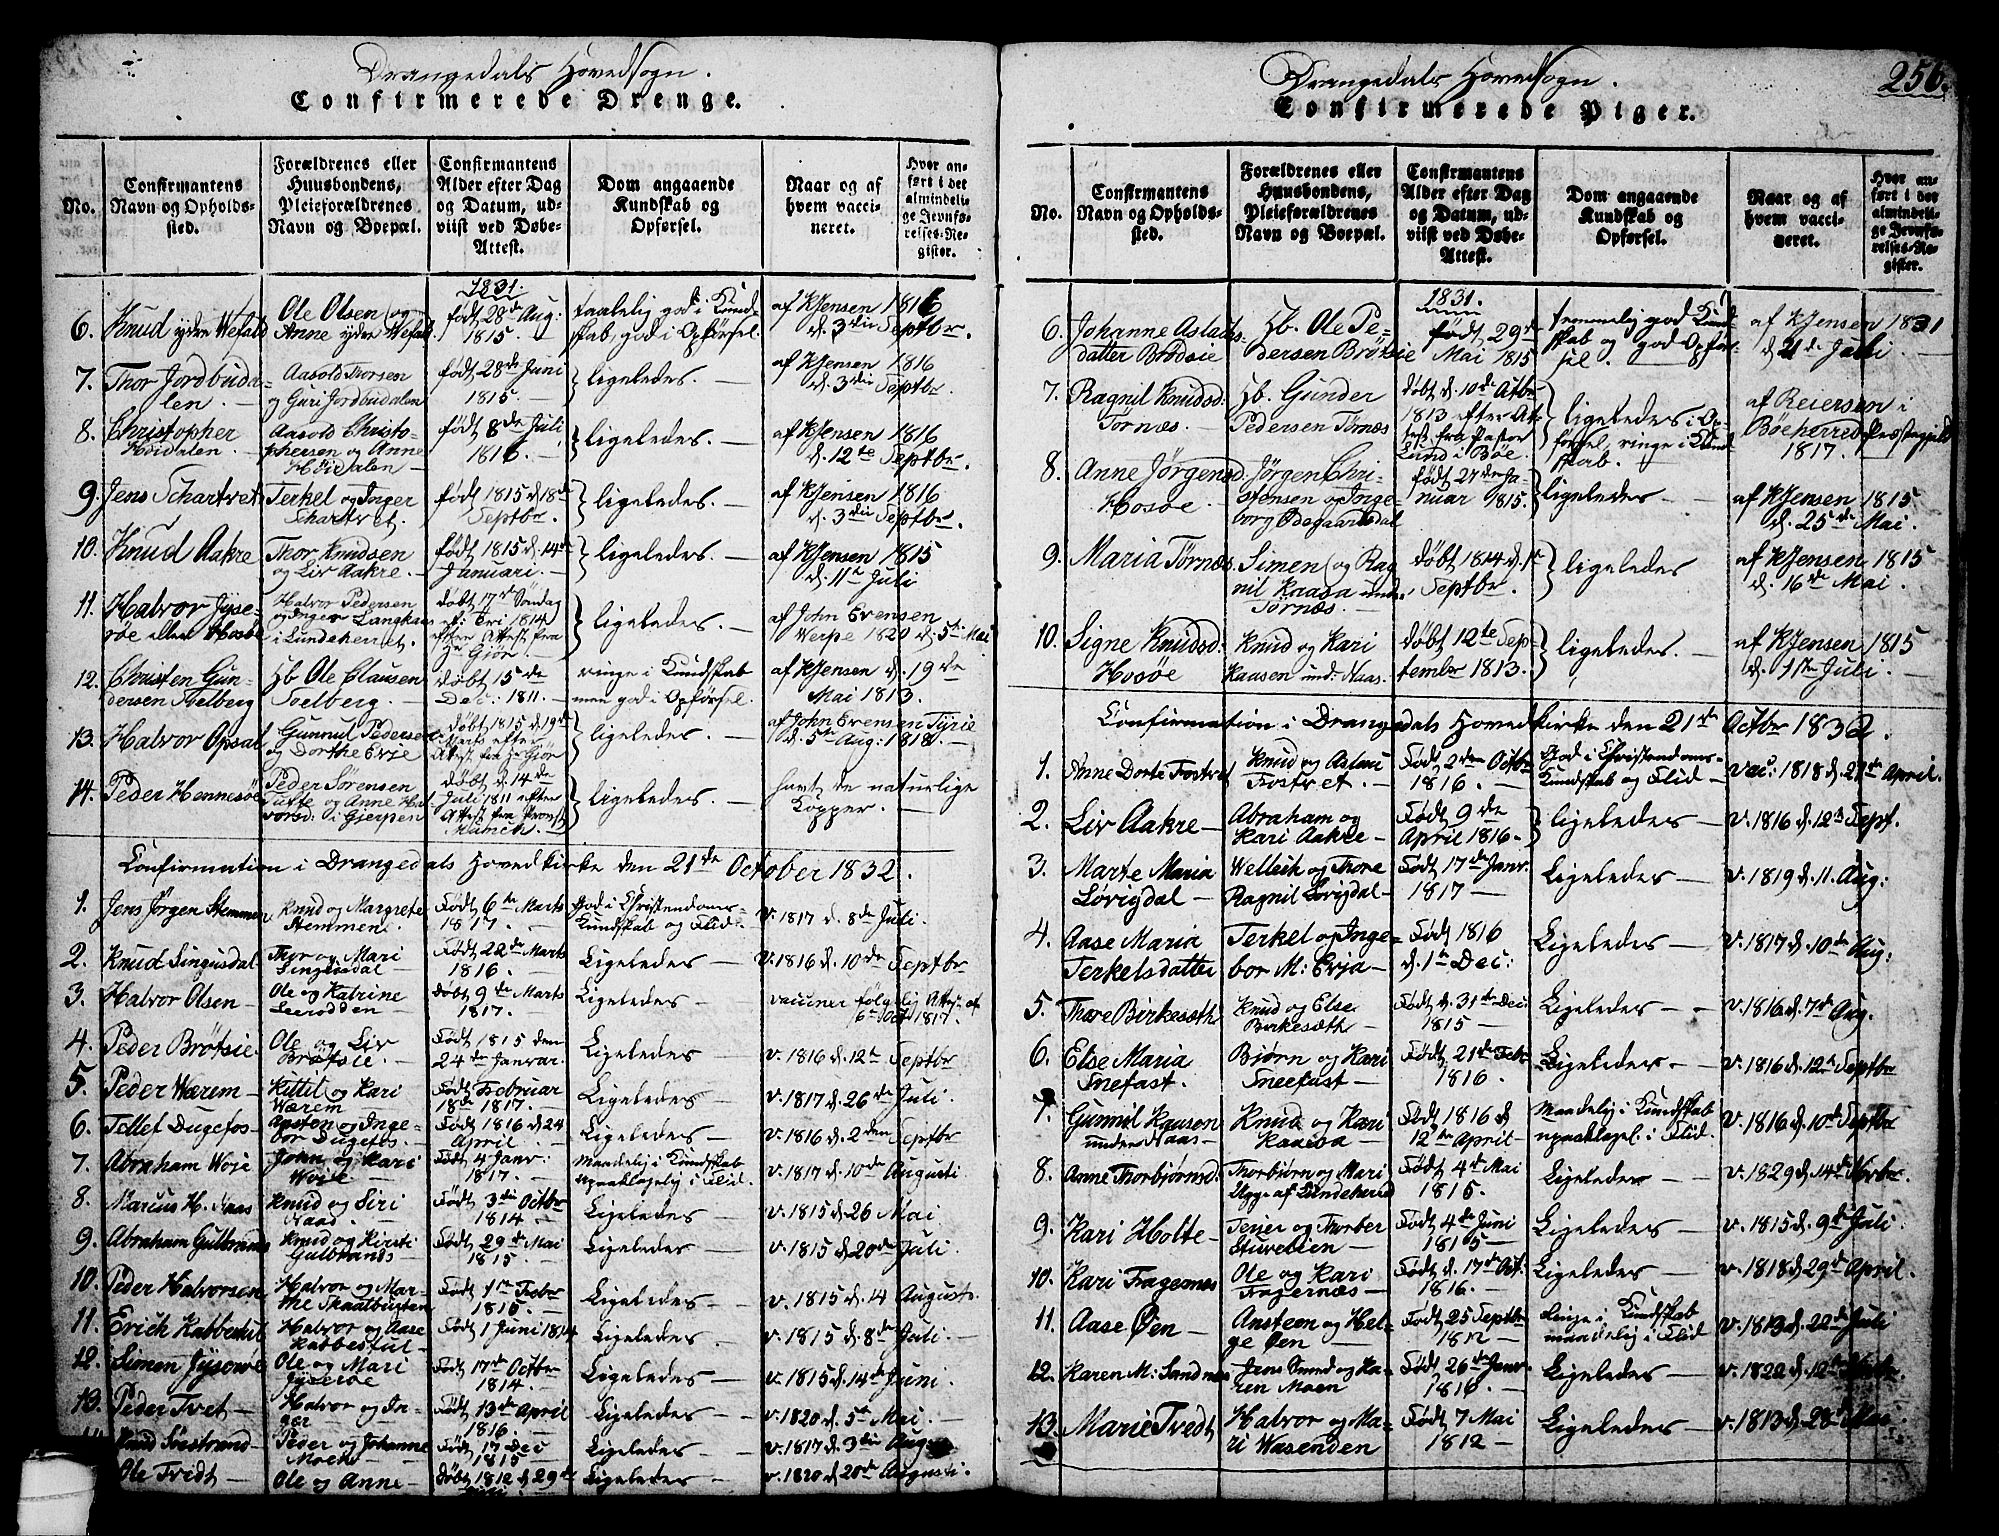 Drangedals Hovedsogn.
Confirmerede Drenge.
No.
Confirmantens Navn og Opholdssted.
Forældrenes eller Huusbondens, Pleieforældrenes Navn og Boepæl.
Confirmantens Alder efter Dag og Datum, udviist ved Døbe-Attest.
Dom angaaende Kundskab og Opførsel.
Naar og af hvem vaccineret.
Hvor anført i det almindelige Jevnførelses-Register.
1831.
6. Knud ydre Wefald Ole Olsen og Anne ydre Wefald født 28de Aug: 1815. taalelig god i Kundskab, god i Opførsel. af KJensen 1816 d. 3die Septbr.
7. Thor Jordbudalen. Aasold Thorsen og Guri Jordbudalen født 28de Juni 1815. ligeledes. af KJensen 1816 d. 3die Septbr.
8. Christopher Høidalen. Aasold Christophersen og Anne Høiedalen født 8de Juli 1816. ligeledes. af KJensen 1816 d. 12te Septbr.
9. Jens Schartvet Terkel og Inger Schartvet. født 1815 d. 18de Septbr ligeledes. af KJensen 1816 d. 3die Septbr.
10. Knud Aakre Thor Knudsen og Liv Aakre. født 1815 d. 14de Januari. ligeledes. af KJensen 1815 d. 11te Juli
11. Halvor Jyserøe eller Hosøe Halvor Pedersen og Inger Langkaas i Lundeherret. døbt 17de Søndag ef: Tri 1814 efter Attest fra Hr Gjør. ligeledes. af John Evensen Werpe 1820 d. 5te Mai
12. Christen Gundersen Toelberg Hb Ole Clausen Toelberg. døbt 15de Dec: 1811. ringe i Kundskab men god i Opførsel. af KJensen d. 19de Mai 1813.
13. Halvor Opsal Gunnul Pedersen og Dorthe Evje døbt 1815 d. 19de Marts efter Attest fra Hr Gjør ligeledes. af John Evensen Tyrie d. 5te Aug: 1818.
14. Peder Hennesøe Peder Sørensen Tufte og Anne Halvorsd: i Gjerpen døbt d. 14de Juli 1811 efter Attest fra Provst Münch. ligeledes. havt de naturlige Kopper.
Confirmation i Drangedals Hovedkirke den 21de October 1832.
1. Jens Jörgen Stemmen Knud og Margrete Stemmen. Født 6te Marts 1817. God i Christendoms-Kundskab og Flid. v. 1817 d. 8de Juli.
2. Knud Lingusdal Thor og Mari Født 22de Marts 1816. Ligeledes v. 1816 d. 10de Septbr
3. Halvor Olsen Ole og Katrine Døbt 9de Marts 1817. Ligeledes vaciner følgelig Attest af 6te Oct 1817.
4. Peder Brötsie Ole og Liv Brötsie. Født 1815 den 24de Januar. Ligeledes v. 1816 d. 12te Septbr
5. Peder Wærem Kittil og Kari Wærem Født Februar 18de 1817. Ligeledes v. 1817 d. 26de Juli.
6. Tellef Dugefos Aasten og Ingebor Dugefos. Født 1816 d 24 April. Ligeledes v. 1816 d. 2den Septbr
7. Abraham Woje John og Kari Woje. Født 4 Janr: 1817. Maadelig i Kundskab upaaklagelig i Flid. v. 1817 d. 10de Augusti
8. Marcus H. Naas Knud og Siri Naas. Født 3die Octbr 1814. Ligeledes v. 1815 d. 26 Mai
9. Abraham Gulbrands Knud og Kirsti Gulbrands Født 29de Mai 1815. Ligeledes v. 1815 d. 20de Juli.
10. Peder Halvorsen Halvor og Marthe Født 1ste Febr 1815. Ligeledes v. 1815 d. 14 Augusti.
11. Erich Kabbestul Halvor og Aase Kabbestul Født 1 Juni 1814 Ligeledes v. 1815 d. 8de Juli.
12. Simen Jyserøe Ole og Mari Jyserøe Født 17de Octbr 1814. Ligeledes v. 1815 d. 14de Juni.
13. Peder Tvet Halvor og Inger Født 13de April 1816. Ligeledes v. 1820 d. 5te Mai.
Peder og Johanne Moen Født 17 Dec 1815 Ligeledes v. 1817 d. 3die Aug:
Ole Tvidt Ole og Anne Døbt 1812 d. 29de Ligeledes v. 1820 d. 20de Augusti.
256.
Drangedals Hovedsogn.
Confirmerede Piger.
No.
Confirmantens Navn og Opholdssted.
Forældrenes eller Huusbondens, Pleieforældrenes Navn og Boepæl.
Confirmantens Alder efter Dag og Datum, udviist ved Døbe-Attest.
Dom angaaende Kundskab og Opførsel.
Naar og af hvem vaccineret.
Hvor anført i det almindelige Jevnførelses-Register.
1831.
6. Johanne Aslaksdatter Brödsie Hb. Ole Pedersen Brötsie født 29de Mai 1815 temmelig god Kundskab og god Opførsel. af KJensen d. 21de Juli
7. Ragnil Knudsd: Tørnæs. Hb. Gunder Pedersen Tørnæs døbt d. 10de Octbr 1813 efter Attest fra Pastor Lund i Bøe. ligeledes i Opførsel, ringe i Kundskab. af Reiersen i Bøeherred Præstegjeld 1817.
8. Anne Jørgensd: Hosøe. Jørgen Christensen og Ingeborg Ødegaardsdal født 27de Januar 1815. ligeledes af KJensen 1815 d. 25de Mai.
9. Maria Tørnæs. Simen og Ragnil Kaasa under Tørnæs. døbt 1814 d. 1te Septbr. ligeledes af KJensen 1815 d. 16de Mai.
10. Signe Knudsd: Hosøe Knud og Kari Kaasen und: Naas. døbt 12te September 1813. ligeledes. af KJensen 1815 d. 11te Juli.
Confirmation i Drangedals Hovedkirke den 21de Octbr 1832.
1. Anne Dorte Fostvet Knud og Aslau Fostvet. Født 2den Octbr 1816. God i Christendoms-Kundskab og Flid Vac: 1818 d. 27de April.
2. Liv Aakre Abraham og Kari Aakre Født 9de April 1816. ligeledes v. 1816 d. 12te Sept.
3. Marte Maria Lövigdal Welleik og Thore Ragnil Lövigdal Født 17de Janr. 1817 Ligeledes v. 1819 d. 11. Aug:
4. Aase Maria Terkelsdatter Terkel og Ingebor M: Evja Født 1816 d. 1te Dec: Ligeledes v. 1817 d. 10de Aug:
5. Thore Birkesæth Knud og Else Birkesæth Født d. 31te Dec: 1815 Ligeledes v. 1816 d. 7de Aug.
6. Else Maria Snefast. Bjørn og Kari Sneefast Født 21de Febr 1816. Ligeledes v. 1816 d. 12te Septbr
7. Gunnil Kaasen under Naas Knud og Kari Kaasa Født 1816 d 12te April Maadelig i Kundskab upaaklagel. i Flid. v. 1816 d. 10de Septbr
8. Anne Thorbjørnsd: Thorbjørn og Mari Ugge af Lundeherred Født 4de Mai 1815. Ligeledes v. 1829 d. 14de
9. Kari Holte Født 4de Juni 1815 Ligeledes v. 1815 d. 9de Juli.
10. Kari Fragernæs Ole og Kari Fragernæs Født d. 17de Oct. 1816. Ligeledes v. 1818 d. 29de April.
11. Aase Øen Ansteen og Helge Øen Født 25 Septbr 1812 Ringe i Kundskab maadelig i Flid v. 1813 d. 22de Juli
12. Karen M: Sandnæs Jens Svend og Karen Moen Født 26de Janr 1816. Ligeledes v. 1822 d. 12te
13. Marie Tvedt Halvor og Mari Waaenden Født 7 Mai 1812 Ligeledes v. 1813 d. 28de Mai